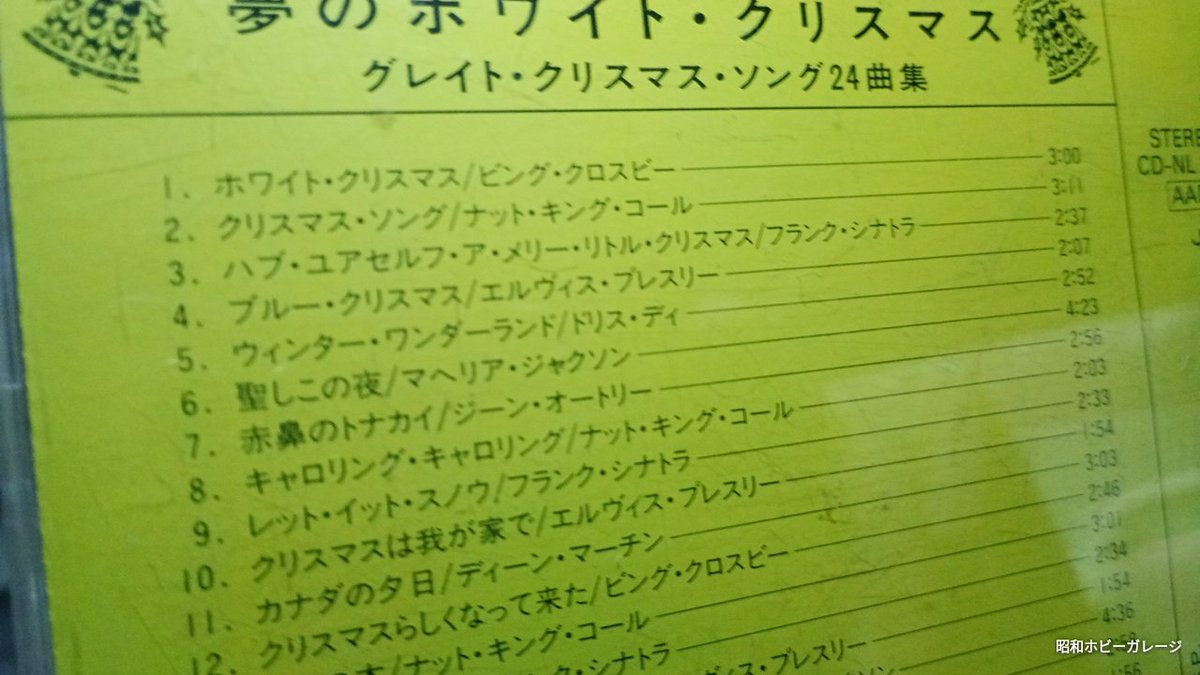 夢のホワイト・クリスマス
グレイト・クリスマス・ソング24曲集
STERE
CD-NL
AA
1. ホワイト・クリスマス/ビング・クロスビー 3:00
2. クリスマス・ソング/ナット・キング・コール 3:11
3. ハブ・ユアセルフ・ア・メリー・リトル・クリスマス/フランク・シナトラ 2:37
4. ブルー・クリスマス/エルヴィス・プレスリー 2:07
5. ウィンター・ワンダーランド/ドリス・デイ 2:52
6. 聖しこの夜/マヘリア・ジャクソン 4:23
7. 赤鼻のトナカイ/ジーン・オートリー 2:56
8. キャロリング・キャロリング/ナット・キング・コール 2:03
9. レット・イット・スノウ/フランク・シナトラ 2:33
10. クリスマスは我が家で/エルヴィス・プレスリー 1:54
11. カナダの夕日/ディーン・マーチン 3:03
12. クリスマスらしくなって来た/ビング・クロスビー 2:46
木/ナット・キング・コール 3:01
ク・シナトラ 2:34
ヴィス・プレスリー 1:54
ソン 4:36
昭和ホビーガレージ